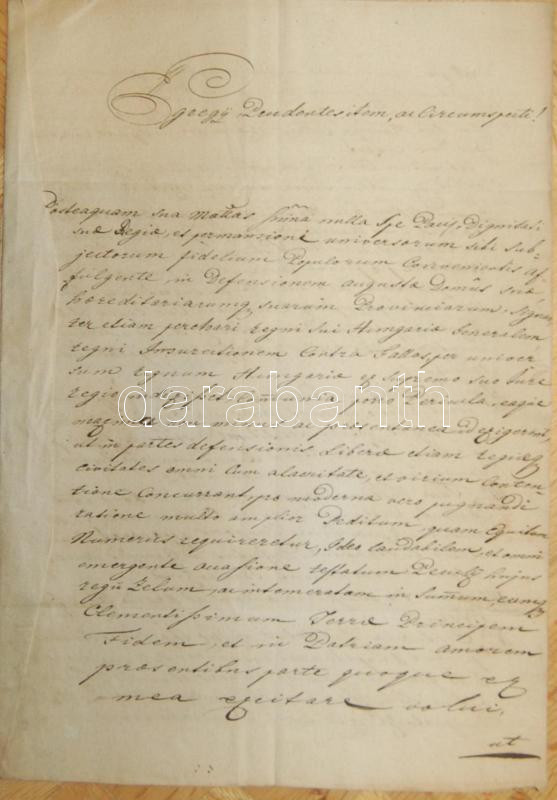 Egregii Prudentes item, ac Circumspecti!
Posteaquam sua Mattas ssma nulla spe Pacis, Dignitati
suæ Regiæ, et permansioni universorum sibi sub-
jectorum fidelium Populorum Convenientis af
fulgente, in Defensionem augustæ Domus suæ
hæreditariarumq suarum Provinciarum, signan
ter etiam perchari regni sui Hungariæ Generalem
regni Insurectionem Contra Gallos per univer
sum regnum Hungariæ ex supremo suo jure
regio
magna
ut in partes defensionis Liberæ etiam regiæq
civitates omni cum alacritate, et virium Conten
tione Concurrant, pro moderna vero pugnandi
ratione multo amplior Peditum, quam Equitum
Numerus requireretur, Ideo laudabilem, et omni
emergente occasione testatum hujus
regii Zelum, ac intemeratam in Summum eumq
Clementissimum Terræ Principem
Fidem, et in Patriam amorem
præsentibus parte quoque ex
mea excitare volui,
ut
darabanth